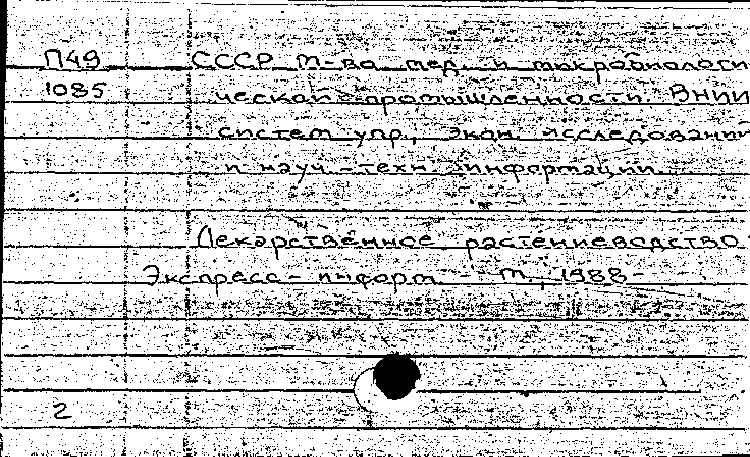 П49 СССР М-во мед. и микробиологи
1085 ческой промышленности. ВНИИ
систем упр., экон. исследований
и науч.-техн. информации.
Лекарственное растениеводство.
Экспресс-информ. М., 1988-
2